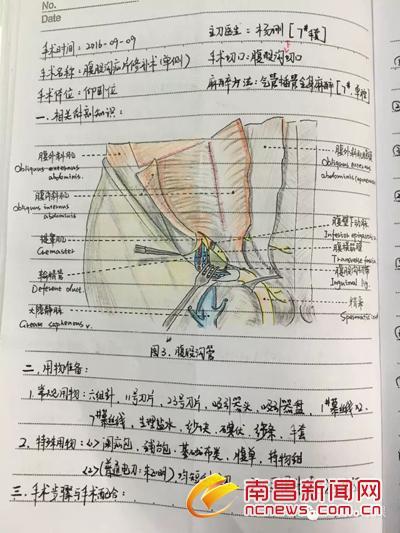 No.
Date
手术时间：2016-09-09
主刀医生：杨刚［7#手套］
手术名称：腹股沟疝片修补术（单例）
手术切口：腹股沟切口
手术体位：仰卧位
麻醉方法：气管插管全身麻醉
一.相关解剖知识：
腹外斜肌
Obliquus externus
abdominis.
腹外斜肌腱膜
Obliquus externus
腹内斜肌
Obliquus internus
abdominis.
腹壁下动脉
提睾肌
Cremaster
腹横筋膜
Transverse fascia
输精管
Deferent duct.
腹股沟韧带
Inguinal lig.
大隐静脉
Great saphenous v.
精索
Spermatic cord
图3.腹股沟管
二.用物准备：
1.常规用物：六组针，11号刀片，23号刀片，吸引器头，吸引器盘，1#慕丝线x2.
7#慕丝线，生理盐水，纱块，碘伏，手套
2.特殊用物：<1>阑疝包，铺台包.基础布类，腹单，持物钳
<2>(普通电刀：
三.手术步骤与手术配合：
南昌新闻网
ncnews.com.cn